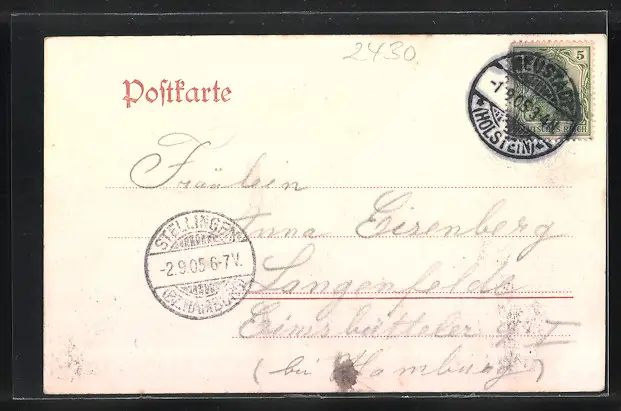 2430.
Postkarte
5
DEUTSCHES REICH
NEUSTADT
-1.9.05.3-4N
*(HOLSTEIN)*
Fräulein
Anna Eisenberg
Langenfelde
Eimsbütteler
(bei Hamburg)
STELLINGEN
-2.9.05.6-7V.
(BZ. HAMBURG)